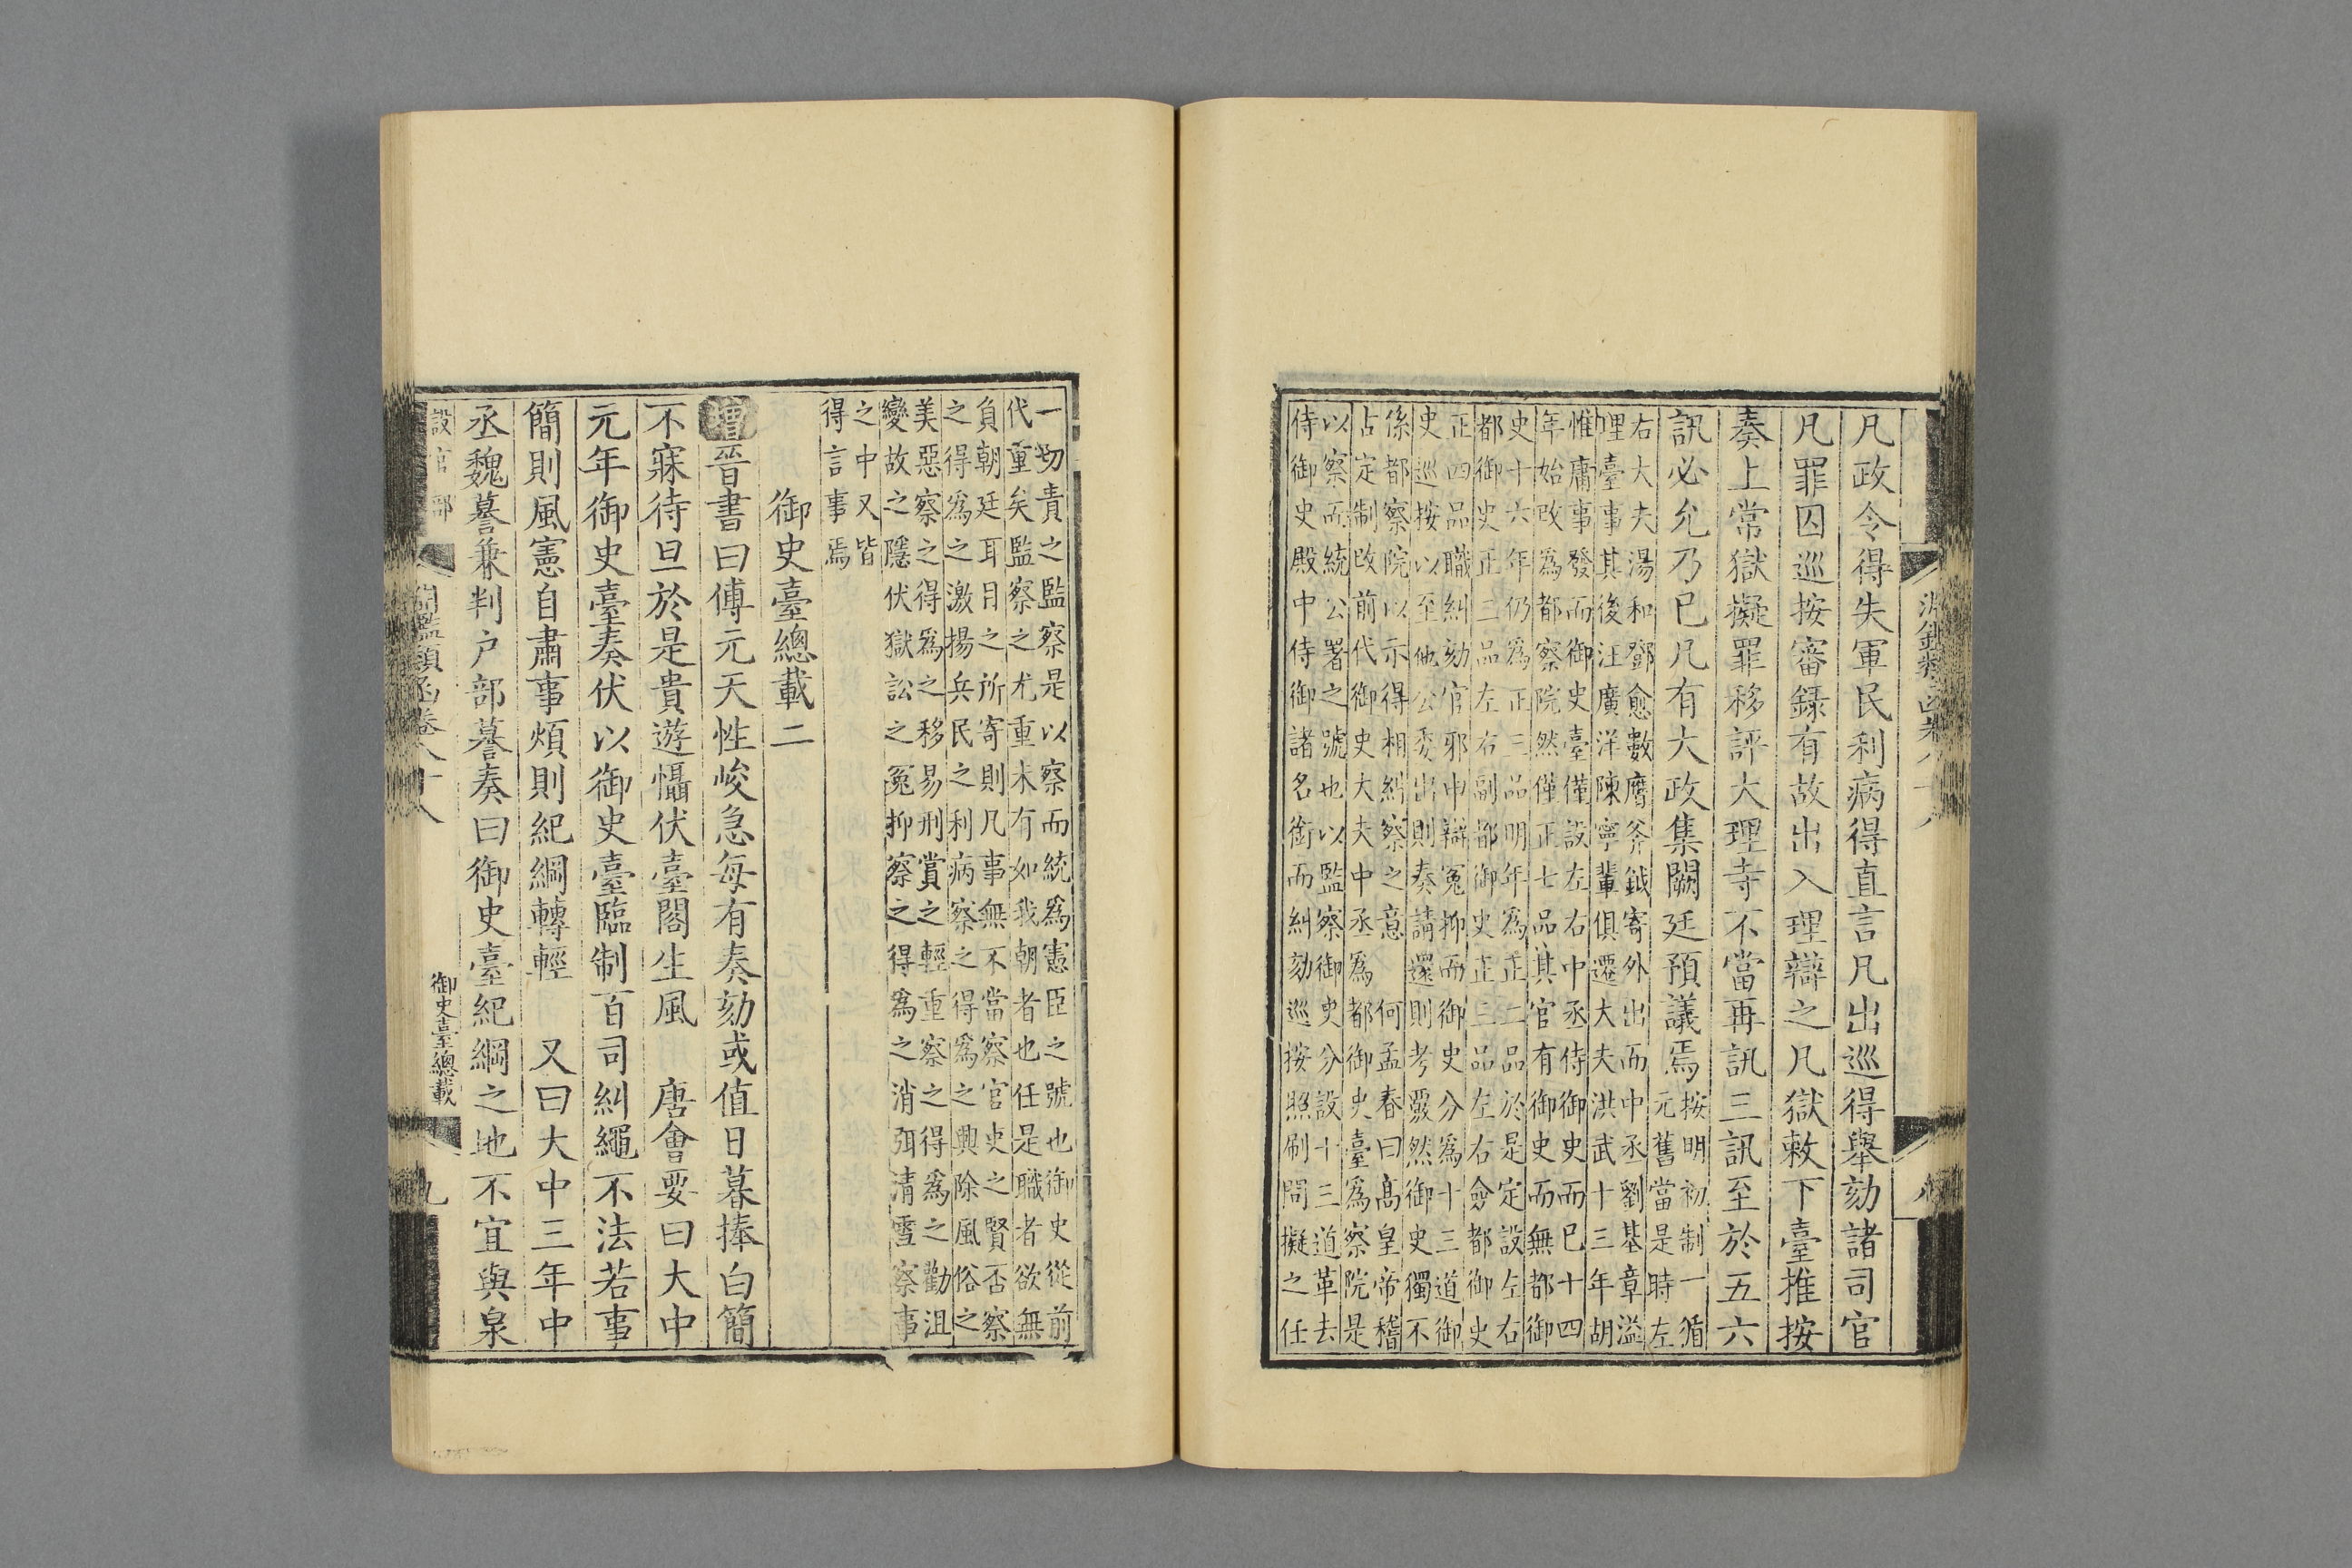 淵鑑類函卷八十八
凡政令得失軍民利病得直言凡出巡得舉劾諸司官
凡罪囚巡按審録有故出入理辯之凡獄敕下臺推按
奏上常獄擬罪移評大理寺不當再訊三訊至於五六
訊必允乃已凡有大政集闕廷預議焉
按明初制一循
元舊當是時左
右大夫湯和鄧愈數膺斧鉞寄外出而中丞劉基章溢
理臺事其後汪廣洋陳寧輩俱遷大夫洪武十三年胡
惟庸事發而御史臺僅設左右中丞侍御史而已十四
年始改爲都察院然僅正七品其官有御史而無都御
史十六年仍爲正三品明年爲正二品於是定設左右
都御史正三品左右副都御史正三品左右僉都御史
正四品職糾劾官邪申辯冤抑而御史分爲十三道御
史巡按以至他公委出則奏請還則考覈然御史獨不
係都察院以示得相糾察之意　何孟春曰高皇帝稽
古定制改前代御史大夫中丞爲都御史臺爲察院是
以察而統公署之號也以監察御史分設十三道革去
侍御史殿中侍御諸名銜而糾劾巡按照刷問擬之任
一切責之監察是以察而統爲憲臣之號也御史從前
代重矣監察之尤重未有如我朝者也任是職者欲無
負朝廷耳目之所寄則凡事無不當察官吏之賢否察
之得爲之激揚兵民之利病察之得爲之興除風俗之
美惡察之得爲之移易刑賞之輕重察之得爲之勸沮
變故之隱伏獄訟之冤抑察之得爲之消弭清雪察事
之中又皆
得言事焉
御史臺總載二
增晉書曰傅元天性峻急每有奏劾或值日暮捧白簡
不寐待旦於是貴遊懾伏臺閣生風　唐會要曰大中
元年御史臺奏伏以御史臺臨制百司糾繩不法若事
簡則風憲自肅事煩則紀綱轉輕　又曰大中三年中
丞魏謩兼判户部謩奏曰御史臺紀綱之地不宜與泉
設官部
淵鑑類函卷八十八
御史臺總載
九